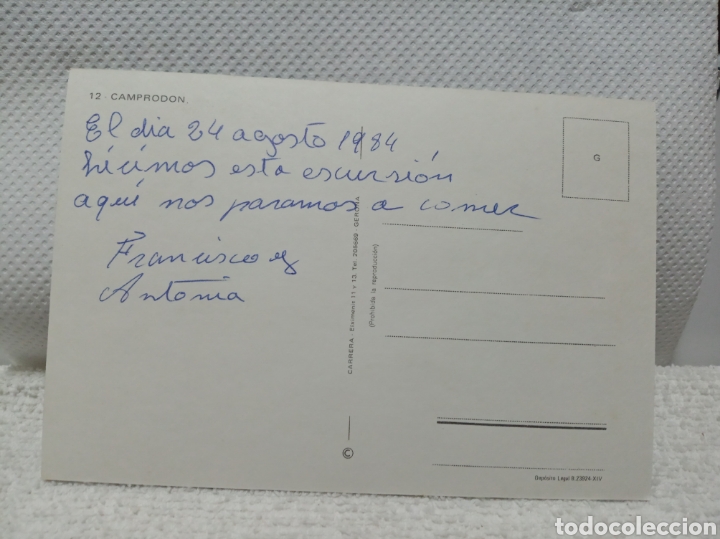 12 - CAMPRODON.
El dia 24 agosto 1984
hicimos esta escursión
aqui nos paramos a comer
Francisco y
Antonia
G
CARRERA - Eiximenis 11 y 13. Tel. 205669 - GERONA
(Prohibida la reproducción)
©
Depósito Legal B. 23924-XIV
todocoleccion